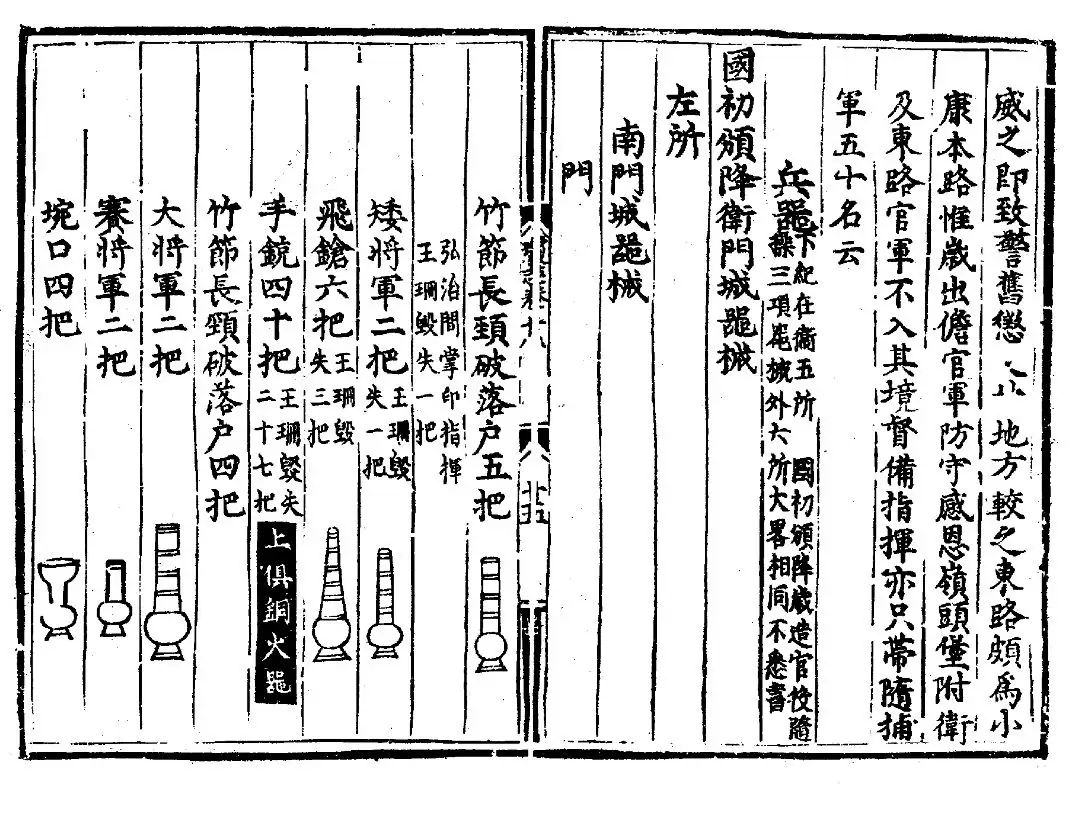 威之即致警舊懲 地方較之東路頗爲小
康本路惟歲出儋官軍防守感恩嶺頭堡附衛
及東路官軍不入其境督備指揮亦只帶隨捕
軍五十名云
兵噐下起在衞五所 國初頒降歲造官校隨
操三項噐械外六所大畧相同不悉書
國初頒降衛門城噐械
左所
南門城噐械
門
十五
竹節長頸破落户五把
弘治間掌印指揮
王珊毀失一把
矮將軍二把王珊毀
失一把
飛鎗六把王珊毀
失三把
手銃四十把王珊毀失
二十七把
上俱銅火噐
竹節長頸破落户四把
大將軍二把
賽將軍二把
埦口四把